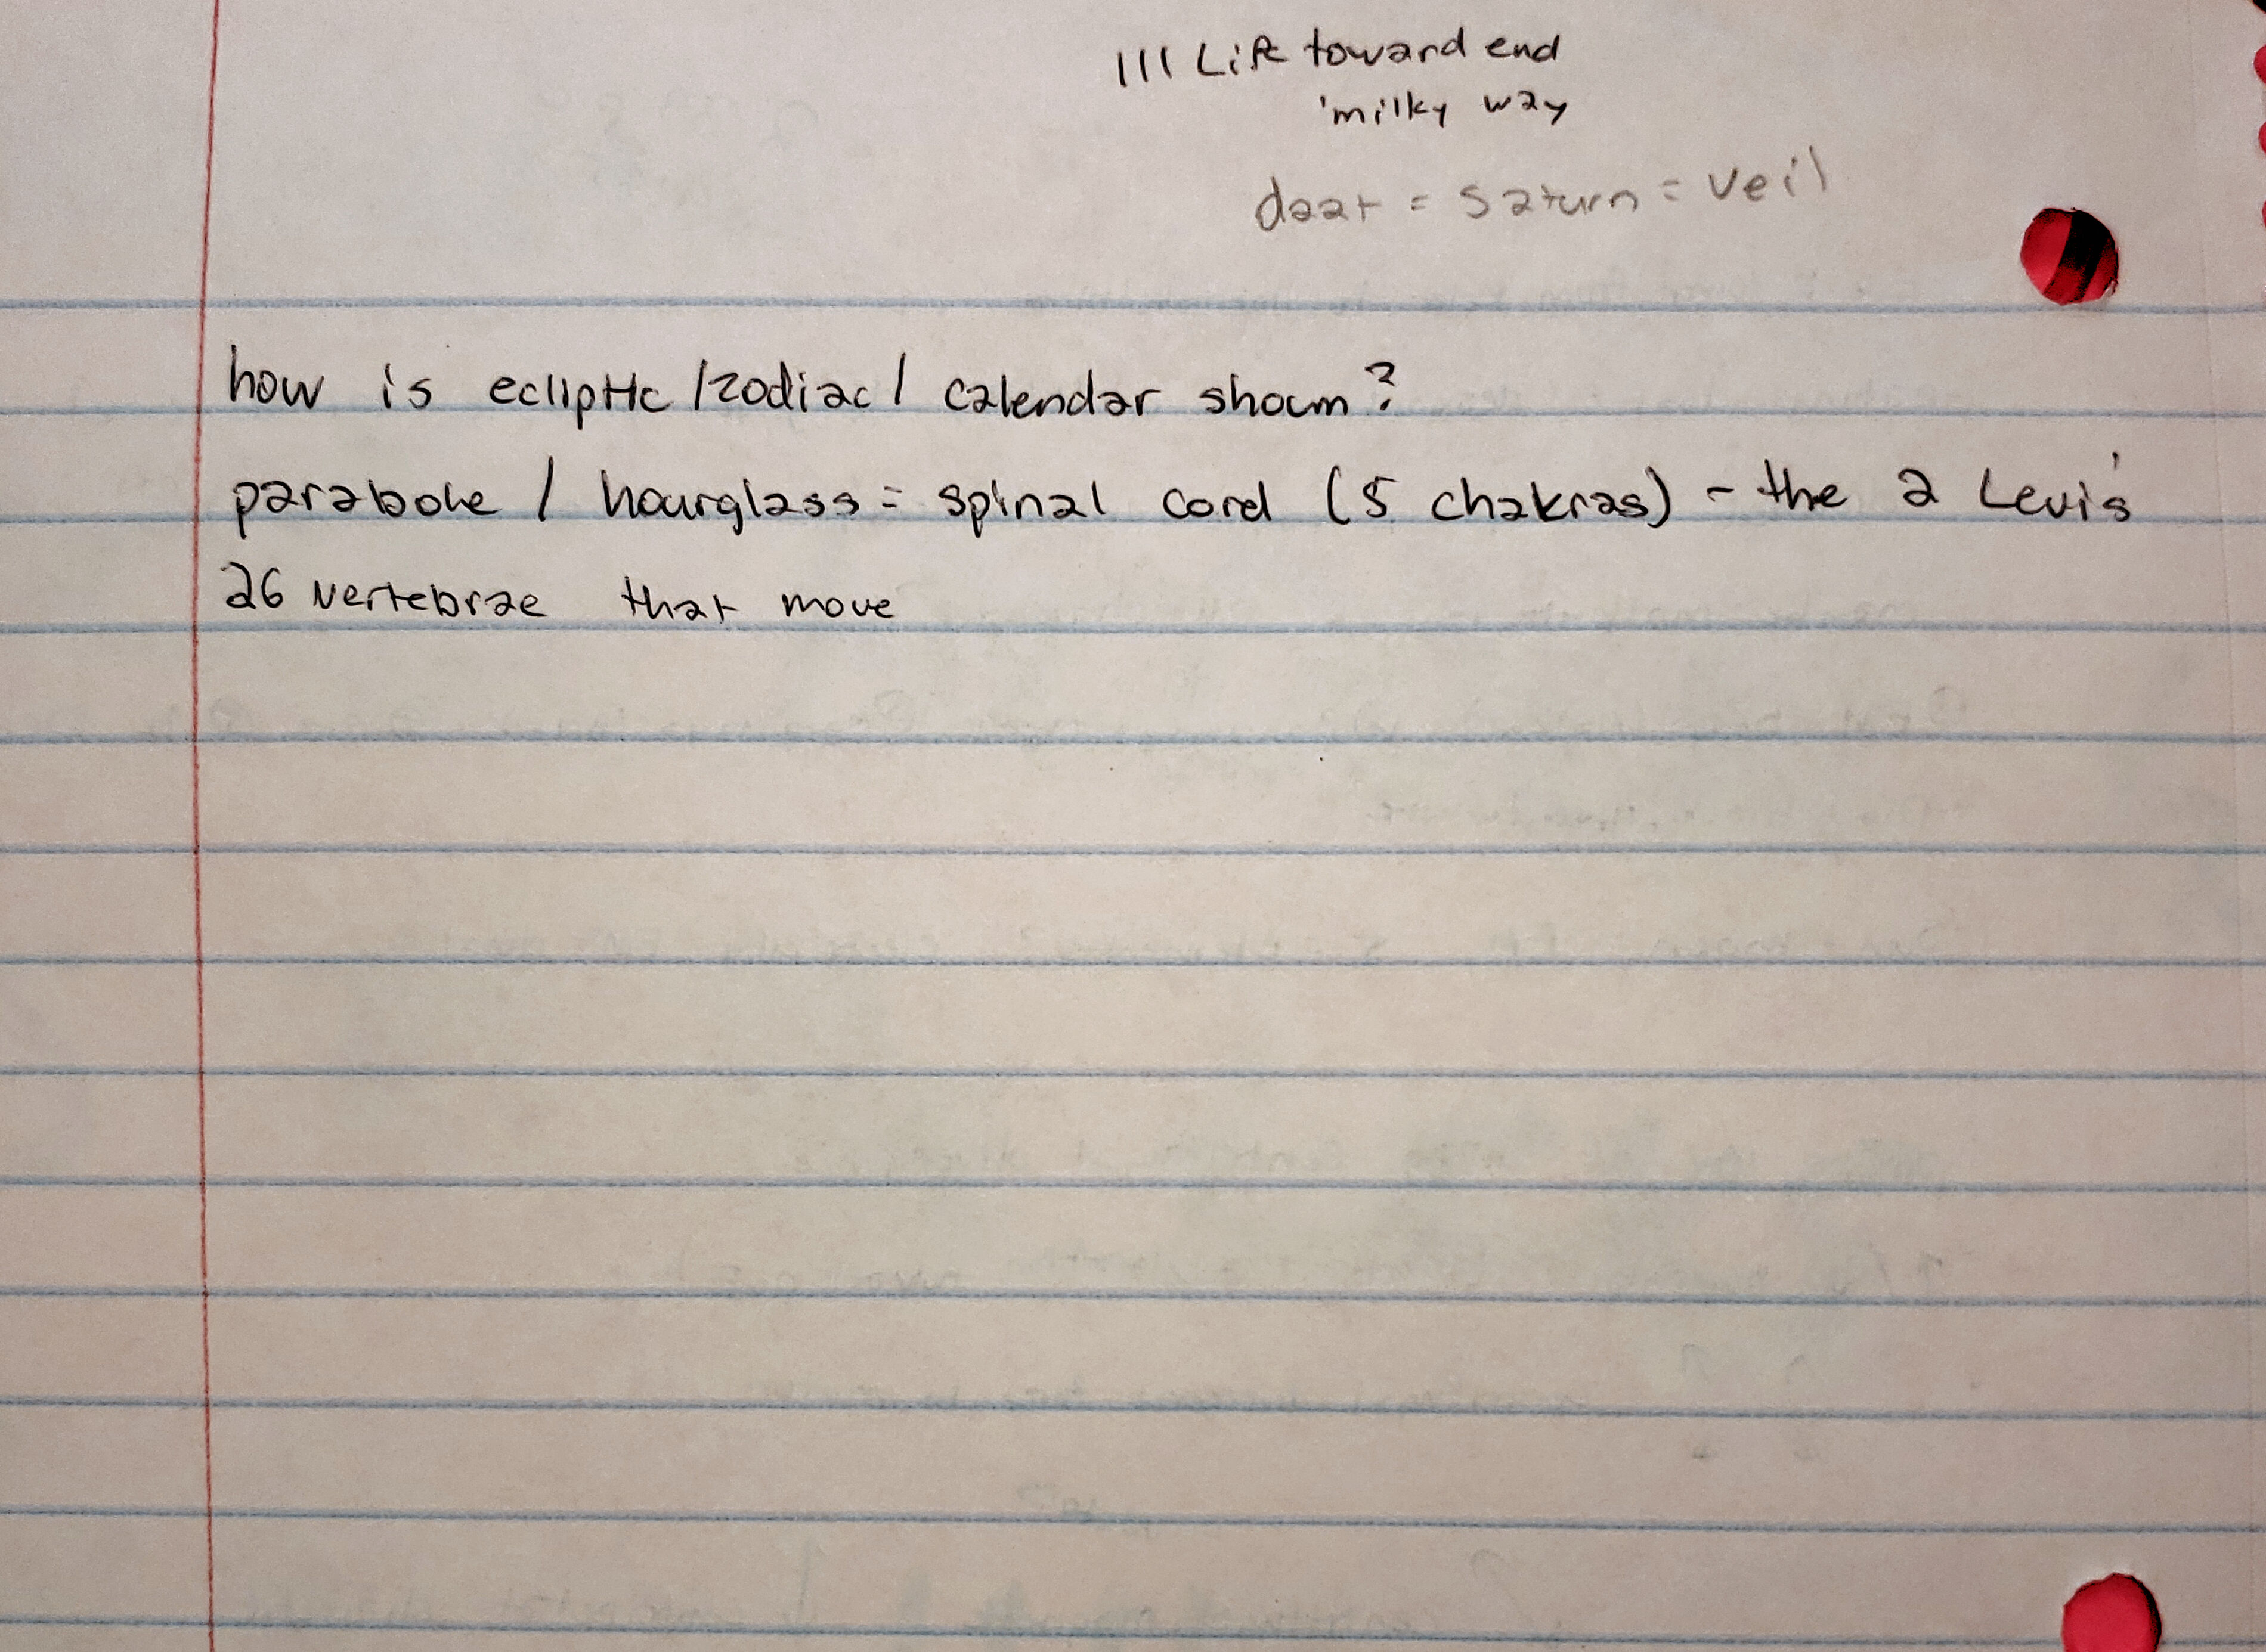 111 Life toward end
'milky way
daat = saturn = veil
how is ecliptic / zodiac / calendar shown?
parabole / hourglass = spinal cord (5 chakras) - the 2 Levi's
26 vertebrae that move